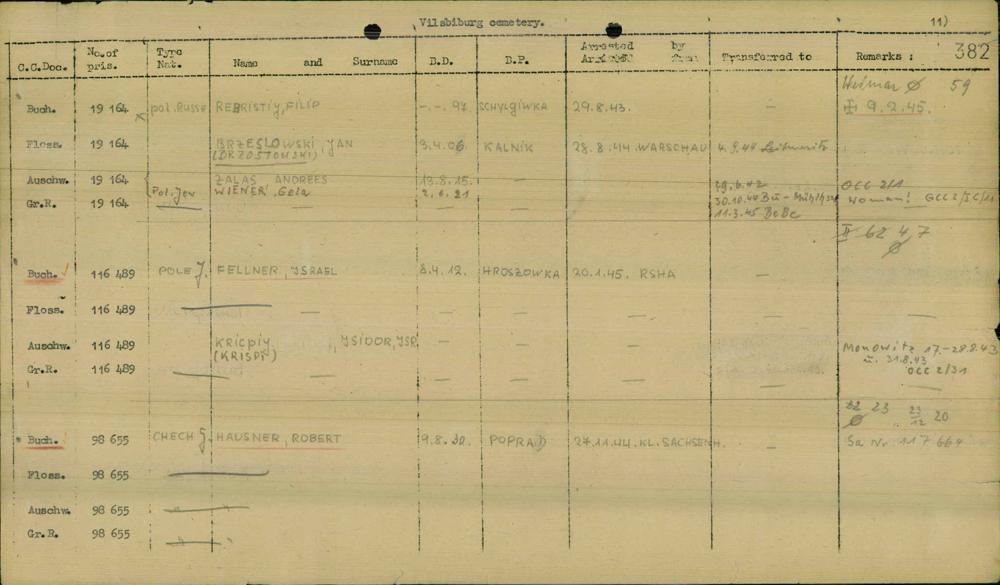 Vilsbiburg cemetery. 11)
C.C.Doc. No.of pris. Type Nat. Name and Surname B.D. B.P. Arrested by Transferred to Remarks : 382
Weimar Ø 59
Buch. 19 164 x pol. Russe REBRISTIY, FILIP -.-. 97. SCHYLGIWKA 29.8.43. — 9.2.45.
Floss. 19 164 BRZESLOWSKI, JAN 9.4.06 KALNIK 28.8.44 WARSCHAU 4.9.44 Leitmeritz
(BRZOSTOWSKI)
Auschw. 19 164 ZALAS ANDREES 13.8.15. — 29.6.42 OCC 2/1
Pol. Jew WIENER Gela 2.6.21 30.10.44 Bu - Woman! GCC 2/IC/11
Gr.R. 19 164 — — — 11.3.45 BeBe
II 62 4 7
Ø
Buch. 116 489 POLE J. FELLNER, ISRAEL 8.4.12. HROSZOWKA 20.1.45. RSHA —
Floss. 116 489 — — — — —
Auschw. 116 489 KRICPIY , ISIDOR, ISR — — — Monowitz 17.-28.8.43
(KRISPI) u. 31.8.43
Gr.R. 116 489 — — — — — OCC 2/31
—
22 23 23/12 20
Ø
Buch. 98 655 CHECH J. HAUSNER, ROBERT 9.8.30. POPRAD 27.11.44. KL. SACHSENH. — Sa Nr. 117 664
Floss. 98 655 —
Auschw. 98 655 —
Gr.R. 98 655 —